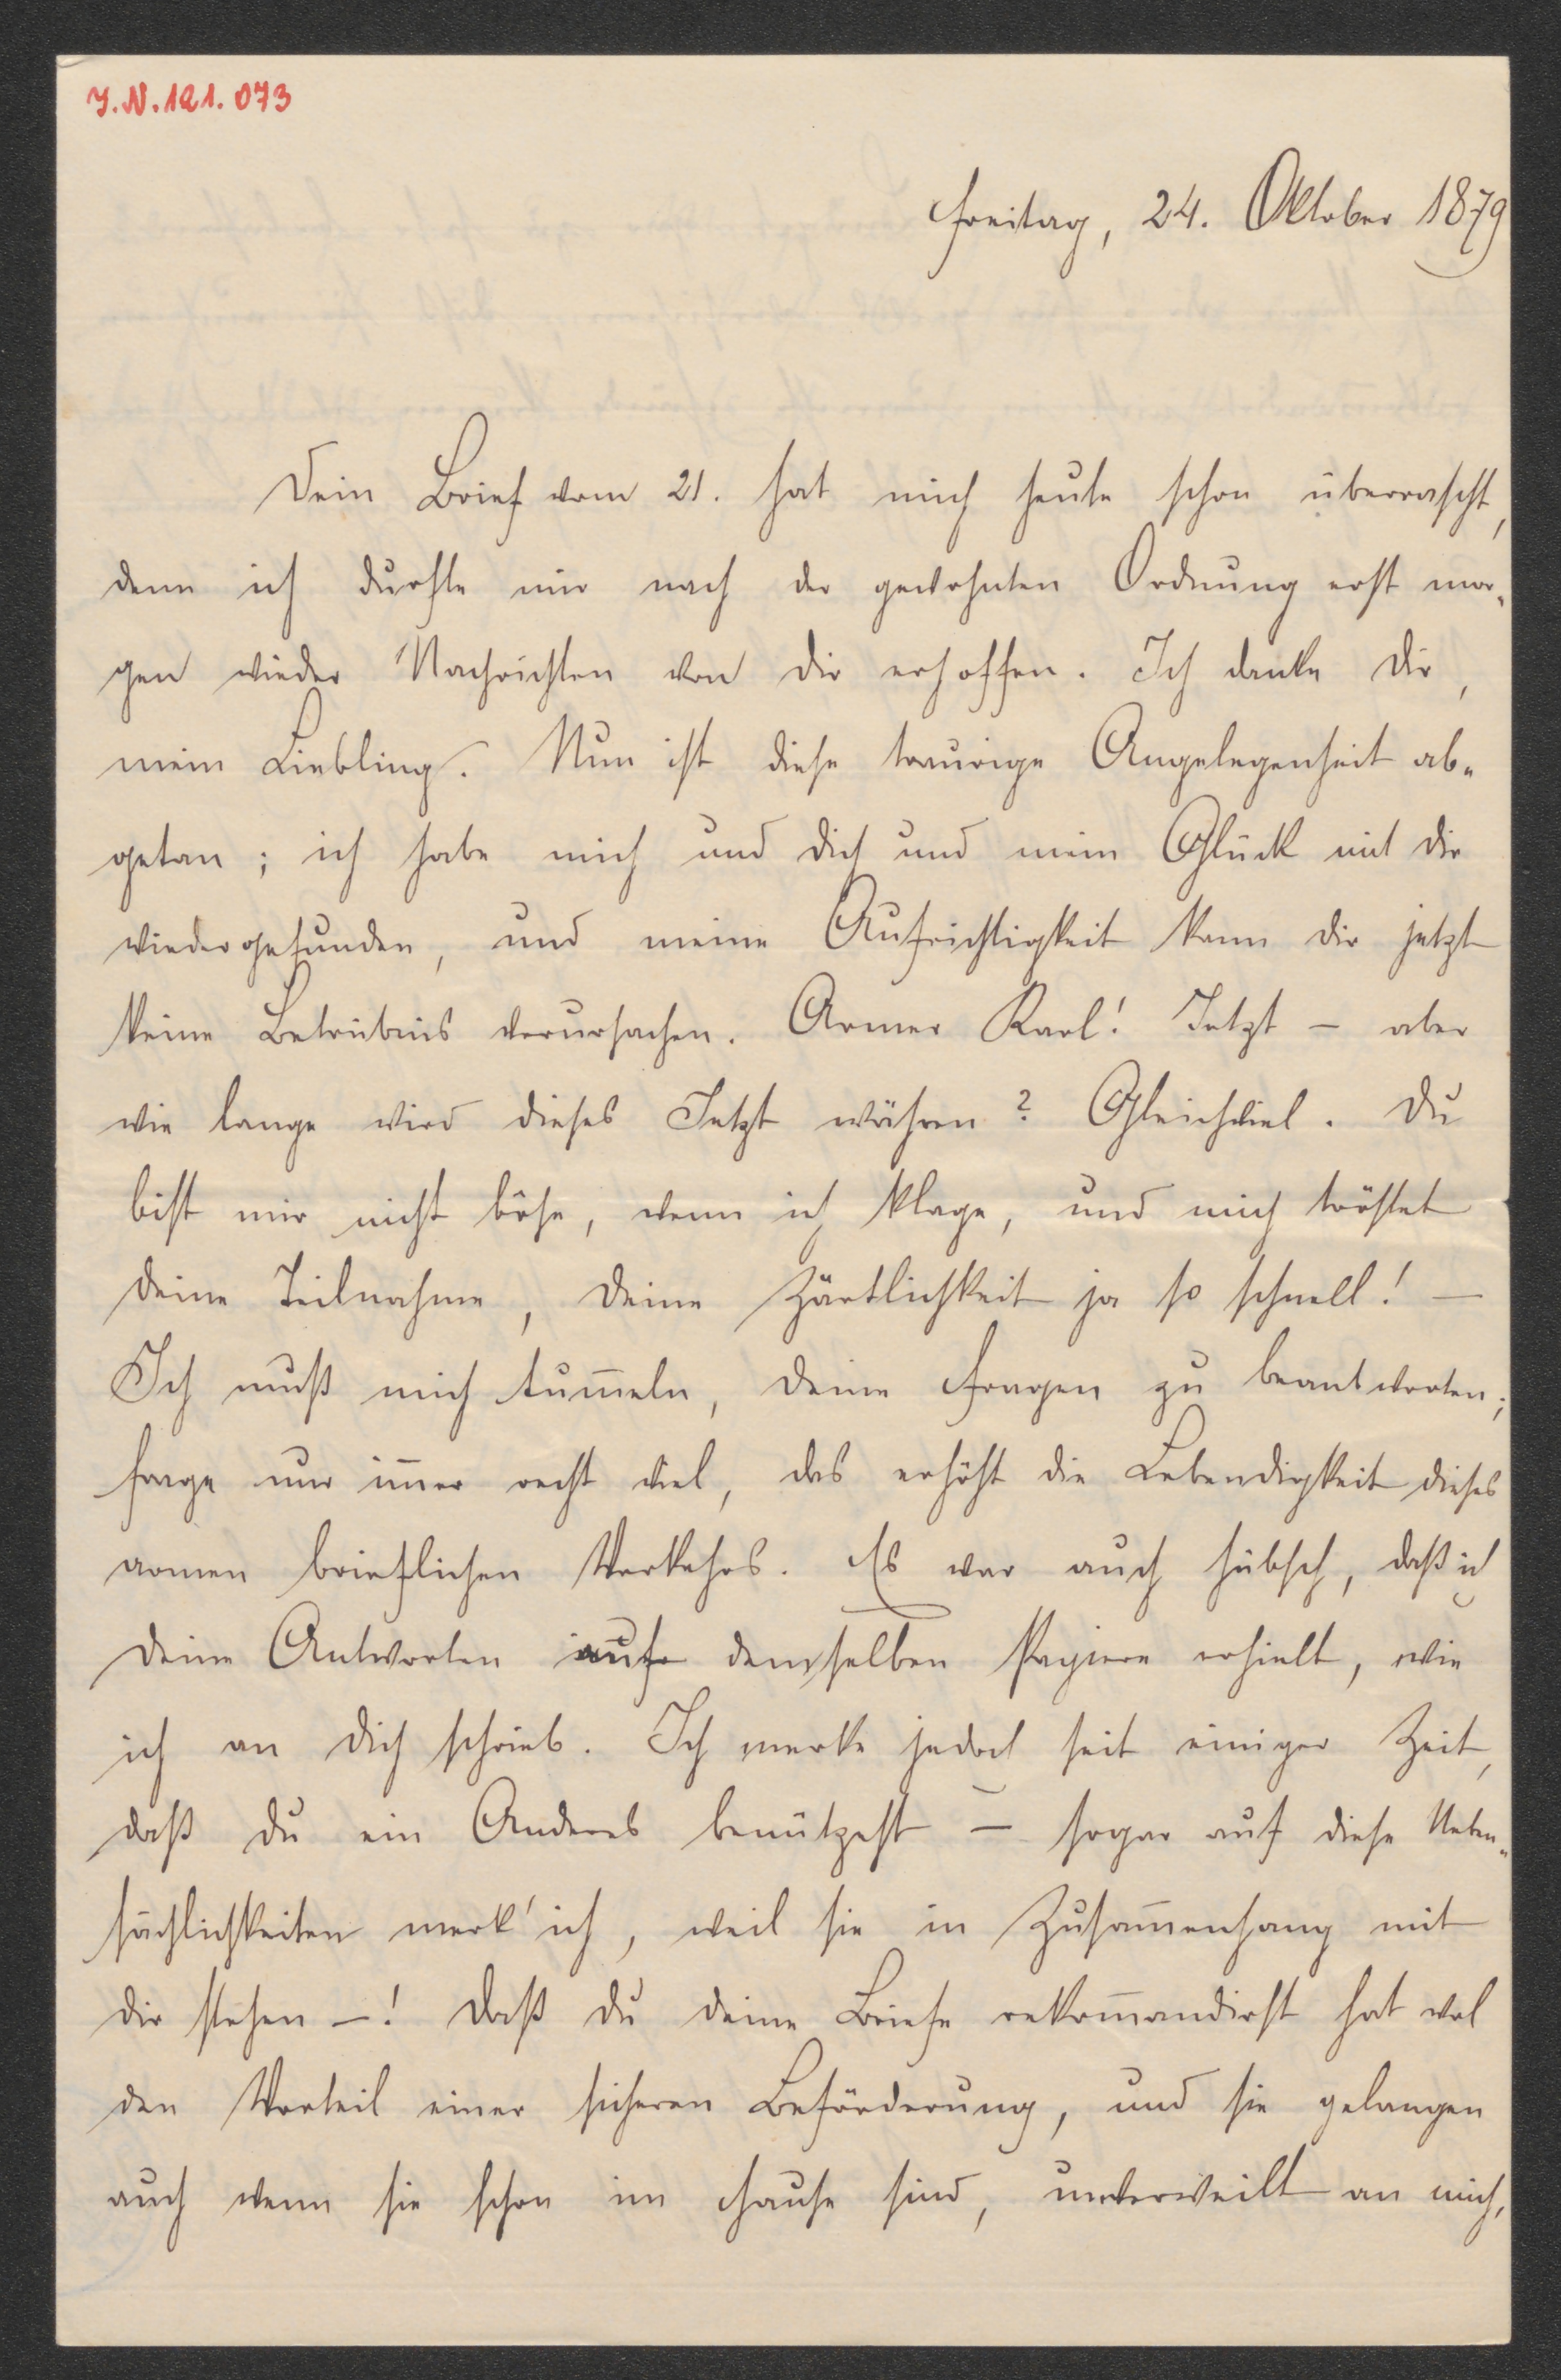 J.N.121.073
Freitag, 24. Oktober 1879
Dein Brief vom 21. hat mich heute schon überrascht,
denn ich durfte mir nach der gewohnten Ordnung erst mor-
gen wieder Nachrichten von dir erhoffen. Ich danke dir,
mein Liebling. Nun ist diese traurige Angelegenheit ab-
getan; ich habe mich und dich und mein Glück mit dir
wiedergefunden, und meine Aufrichtigkeit kann dir jetzt
keine Betrübnis verursachen. Armer Karl! Jetzt – aber
wie lange wird dieses Jetzt währen? Gleichviel. Du
bist mir nicht böse, wenn ich klage, und mich tröstet
deine Teilnahme, deine Zärtlichkeit ja so schnell! –
Ich muß mich tum̅eln, deine Fragen zu beantworten;
frage nur im̅er recht viel, das erhöht die Lebendigkeit dieses
armen brieflichen Verkehrs. Es war auch hübsch, daß ich
deine Antworten auf demselben Papiere erhielt, wie
ich an dich schrieb. Ich merke jedoch seit einiger Zeit,
daß du ein Anderes benützest – sogar auf diese Neben-
sächlichkeiten merk' ich, weil sie in Zusam̅enhang mit
dir stehen –! Daß du deine Briefe rekom̅andirst hat wol
den Vorteil einer sicheren Beförderung, und sie gelangen
auch wenn sie schon im Hause sind, unverweilt an mich,